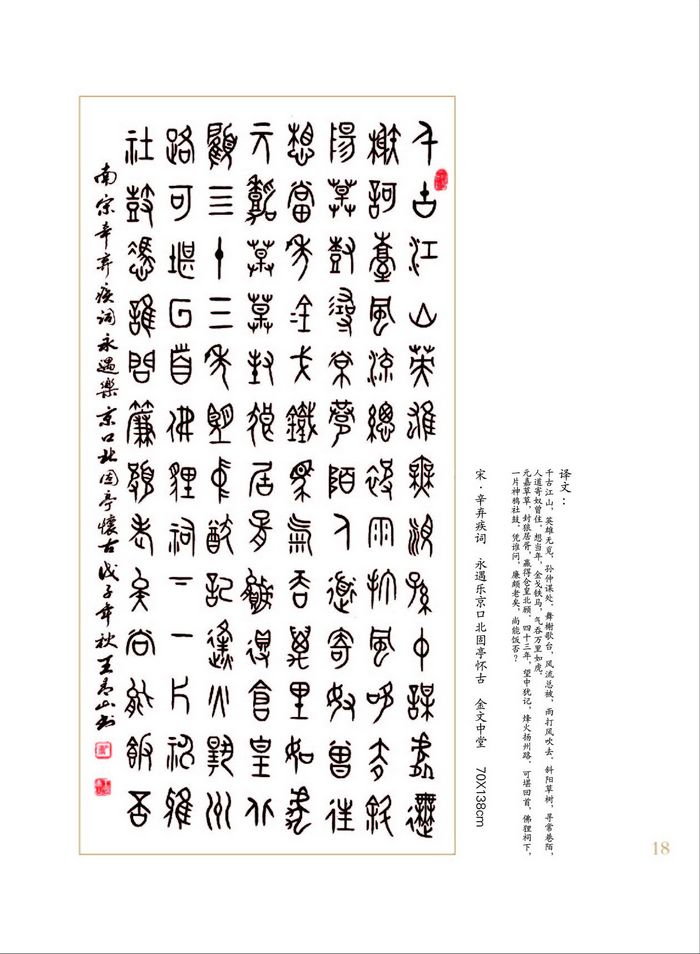 千古江山英雄無覓孫仲謀處舞
榭歌臺風流總被雨打風吹去斜
陽草樹尋常巷陌人道寄奴曾住
想當年金戈鐵馬氣吞萬里如虎
元嘉草草封狼居胥贏得倉皇北
顧亖十三年望中猶記烽火揚州
路可堪回首佛貍祠下一片神鴉
社鼓憑誰問廉頗老矣尚能飯否
南宋辛弃疾词永遇樂京口北固亭懷古戊子年秋王山书
译文：
千古江山，英雄无觅，孙仲谋处，舞榭歌台，风流总被，雨打风吹去，斜阳草树，寻常巷陌，
人道寄奴曾住，想当年，金戈铁马，气吞万里如虎，
元嘉草草，封狼居胥，赢得仓皇北顾，四十三年，望中犹记，烽火扬州路，可堪回首，佛狸祠下，
一片神鸦社鼓，凭谁问，廉颇老矣，尚能饭否？
宋·辛弃疾词 永遇乐京口北固亭怀古 金文中堂 70X138cm
18